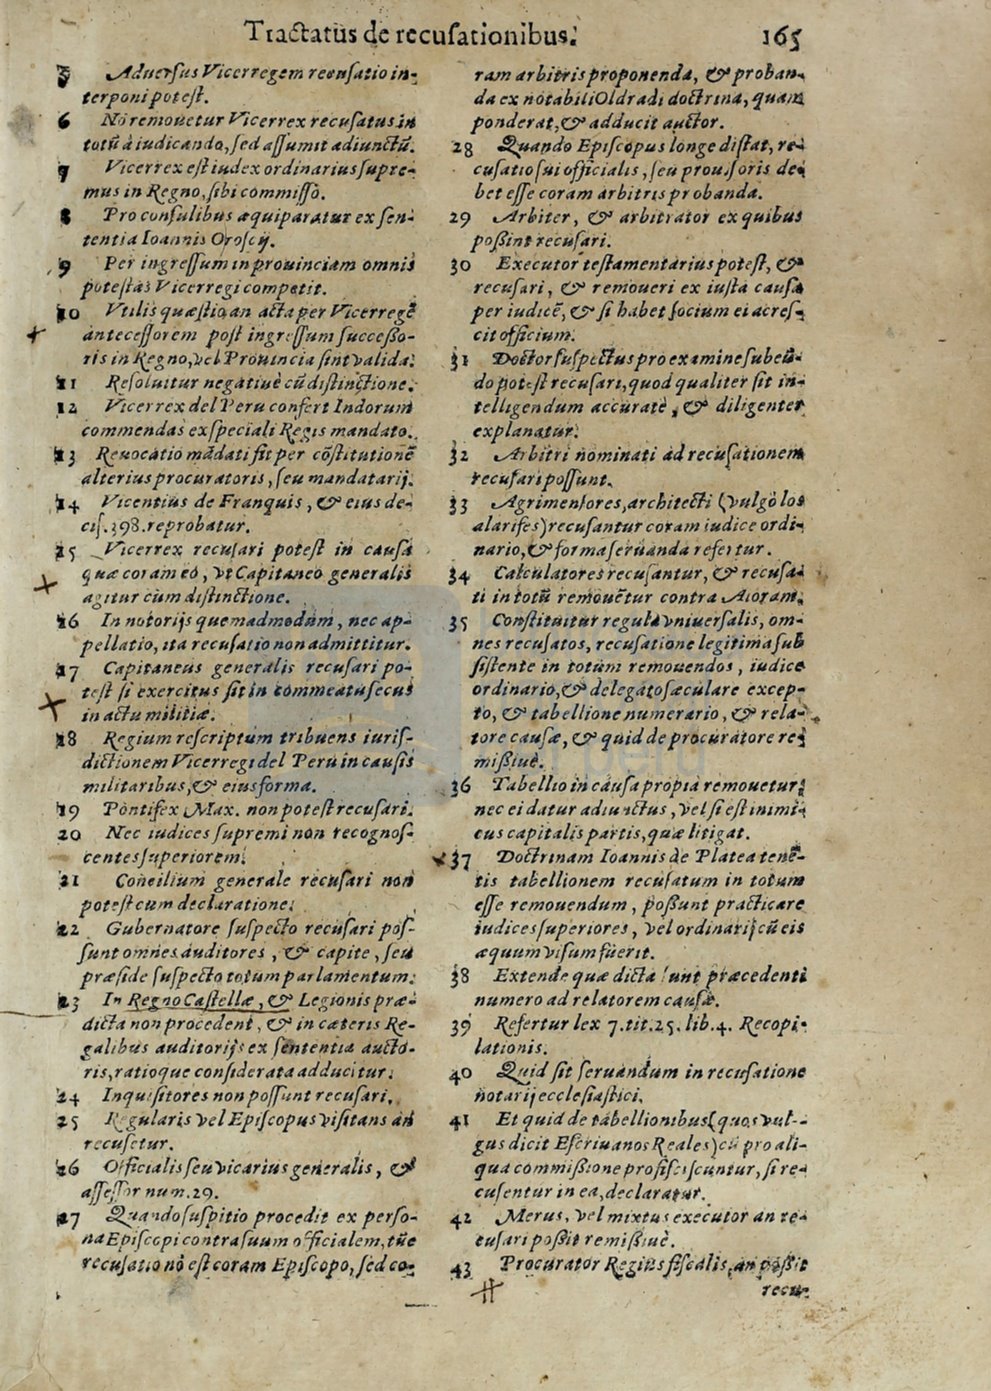 Tractatus de recusationibus. 165
5 Aduersus Vicerregem recusatio in-
terponi potest.
6 Nō remouetur Vicerrex recusatus in
totū à iudicando, sed assumit adiunctū.
7 Vicerrex est iudex ordinarius supre-
mus in Regno, sibi commisso.
8 Pro consulibus æquiparatur ex sen-
tentia Ioannis Oroscij.
9 Per ingressum in prouinciam omnis
potestas Vicerregi competit.
10 Vtilis quæstio, an acta per Vicerregē
antecessorem post ingressum successo-
ris in Regno, vel Prouincia sint valida.
11 Resoluitur negatiuè cū distinctione.
12 Vicerrex del Peru confert Indorum
commendas ex speciali Regis mandato.
13 Reuocatio mādati fit per cōstitutionē
alterius procuratoris, seu mandatarij.
14 Vicentius de Franquis, & eius de-
cis. 398. reprobatur.
15 Vicerrex recusari potest in causa
quæ coram eo, vt Capitaneo generalis
agitur cum distinctione.
16 In notorijs quemadmodum, nec ap-
pellatio, ita recusatio non admittitur.
17 Capitaneus generalis recusari po-
test si exercitus sit in commeatu secus
in actu militiæ.
18 Regium rescriptum tribuens iuris-
dictionem Vicerregi del Peru in causis
militaribus, & eius forma.
19 Pontifex Max. non potest recusari.
20 Nec iudices supremi non recognos-
centes superiorem.
21 Concilium generale recusari non
potest cum declaratione.
22 Gubernatore suspecto recusari pos-
sunt omnes auditores, & capite, seu
præside suspecto totum parlamentum.
23 In Regno Castellæ, & Legionis præ-
dicta non procedent, & in cæteris Re-
galibus auditorijs ex sententia aucto-
ris, ratioque considerata adducitur.
24 Inquisitores non possunt recusari.
25 Regularis vel Episcopus visitans an
recusetur.
26 Officialis seu vicarius generalis, &
assessor num. 29.
27 Quando suspitio procedit ex perso-
na Episcopi contra suum officialem, tūc
recusatio nō est coram Episcopo, sed co-
ram arbitris proponenda, & proban-
da ex notabili Oldradi doctrina, quam
ponderat, & adducit auctor.
28 Quando Episcopus longe distat, re-
cusatio sui officialis, seu prouisoris de-
bet esse coram arbitris probanda.
29 Arbiter, & arbitrator ex quibus
possint recusari.
30 Executor testamentarius potest, &
recusari, & remoueri ex iusta causa
per iudicē, & si habet socium ei acres-
cit officium.
31 Doctor suspectus pro examine subeū-
do potest recusari, quod qualiter sit in-
telligendum accuratè, & diligenter
explanatur.
32 Arbitri nominati ad recusationem
recusari possunt.
33 Agrimensores, architecti (vulgò los
alarifes) recusantur coram iudice ordi-
nario, & forma seruanda refertur.
34 Calculatores recusantur, & recusa-
ti in totū remouētur contra Aioram.
35 Constituitur regula vniuersalis, om-
nes recusatos, recusatione legitima sub
sistente in totum remouendos, iudice
ordinario, & delegato sæculare excep-
to, & tabellione numerario, & rela-
tore causæ, & quid de procuratore re-
missiuè.
36 Tabellio in causa propia remouetur,
nec ei datur adiunctus, vel si est inimi-
cus capitalis partis, quæ litigat.
37 Doctrinam Ioannis de Platea tenē-
tis tabellionem recusatum in totum
esse remouendum, possunt practicare
iudices superiores, vel ordinarij cū eis
æquum visum fuerit.
38 Extende quæ dicta sunt præcedenti
numero ad relatorem causæ.
39 Refertur lex 7. tit. 25. lib. 4. Recopi-
lationis.
40 Quid sit seruandum in recusatione
notarij ecclesiastici.
41 Et quid de tabellionibus (quos vul-
gus dicit Escriuanos Reales) cū pro ali-
qua commissione profisciscuntur, si re-
cusentur in ea, declaratur.
42 Merus, vel mixtus executor an re-
cusari possit remissiuè.
43 Procurator Regius fiscalis, an possit
recu-